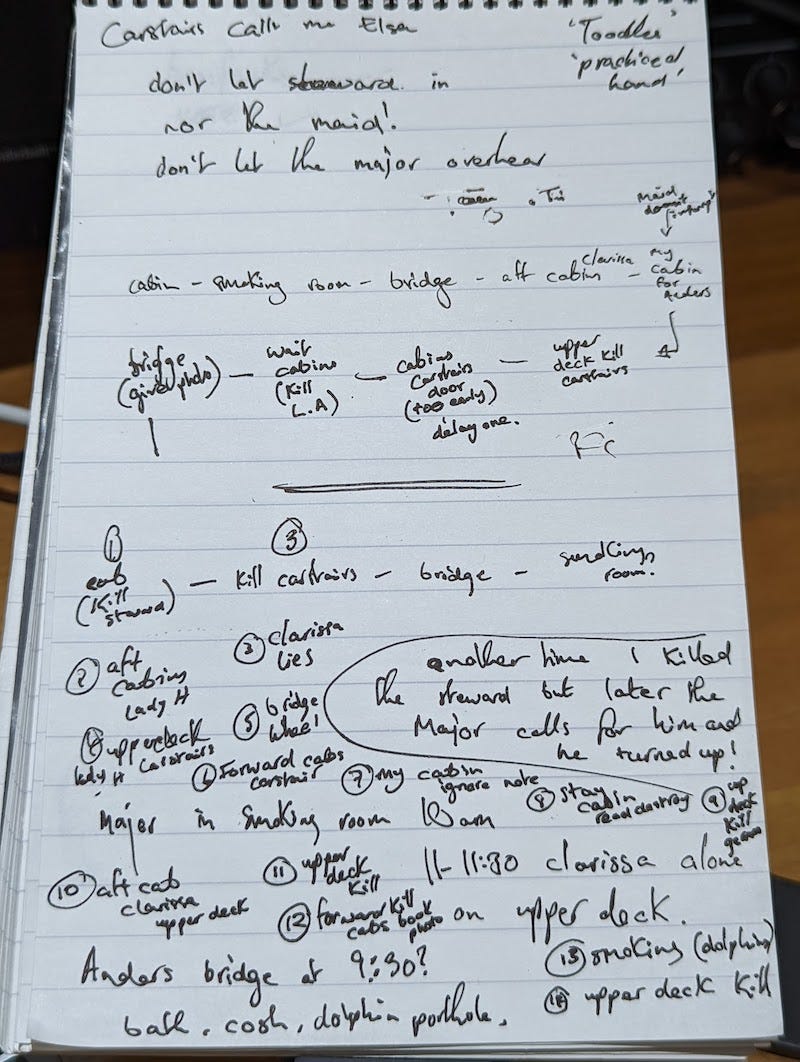 Carstairs calls me Elsa
'Toodles'
'practiced
hand'
don't let steward in
nor the maid!
don't let the major overhear
Maid
doesn't
cabin - smoking room - bridge - aft cabin clarissa - my
cabin
for
Anders
bridge
(give photo) - wait
cabins
(kill
L.A) - cabins
Carstairs
door
(too early)
delay one. - upper
deck kill
carstairs
① ③
cab
(Kill
steward) - kill carstairs - bridge - smoking
room.
② aft
cabins
Lady H
③ clarissa
lies
another time I killed
the steward but later the
Major calls for him and
he turned up!
④ upperdeck
lady H Carstairs
⑤ bridge
wheel
⑥ forward cabs
carstair
⑦ my cabin
ignore note
⑧ stay
cabin
read destroy
⑨ up
deck
kill
Major in smoking room 10am
11-11:30 clarissa alone
on upper deck.
⑩ aft cab
clarissa
upper deck
⑪ upper
deck
kill
⑫ forward kill
cabs book
photo
⑬ smoking (dolphin)
⑭ upper deck kill
Anders bridge at 9:30?
ball, cosh, dolphin porthole.